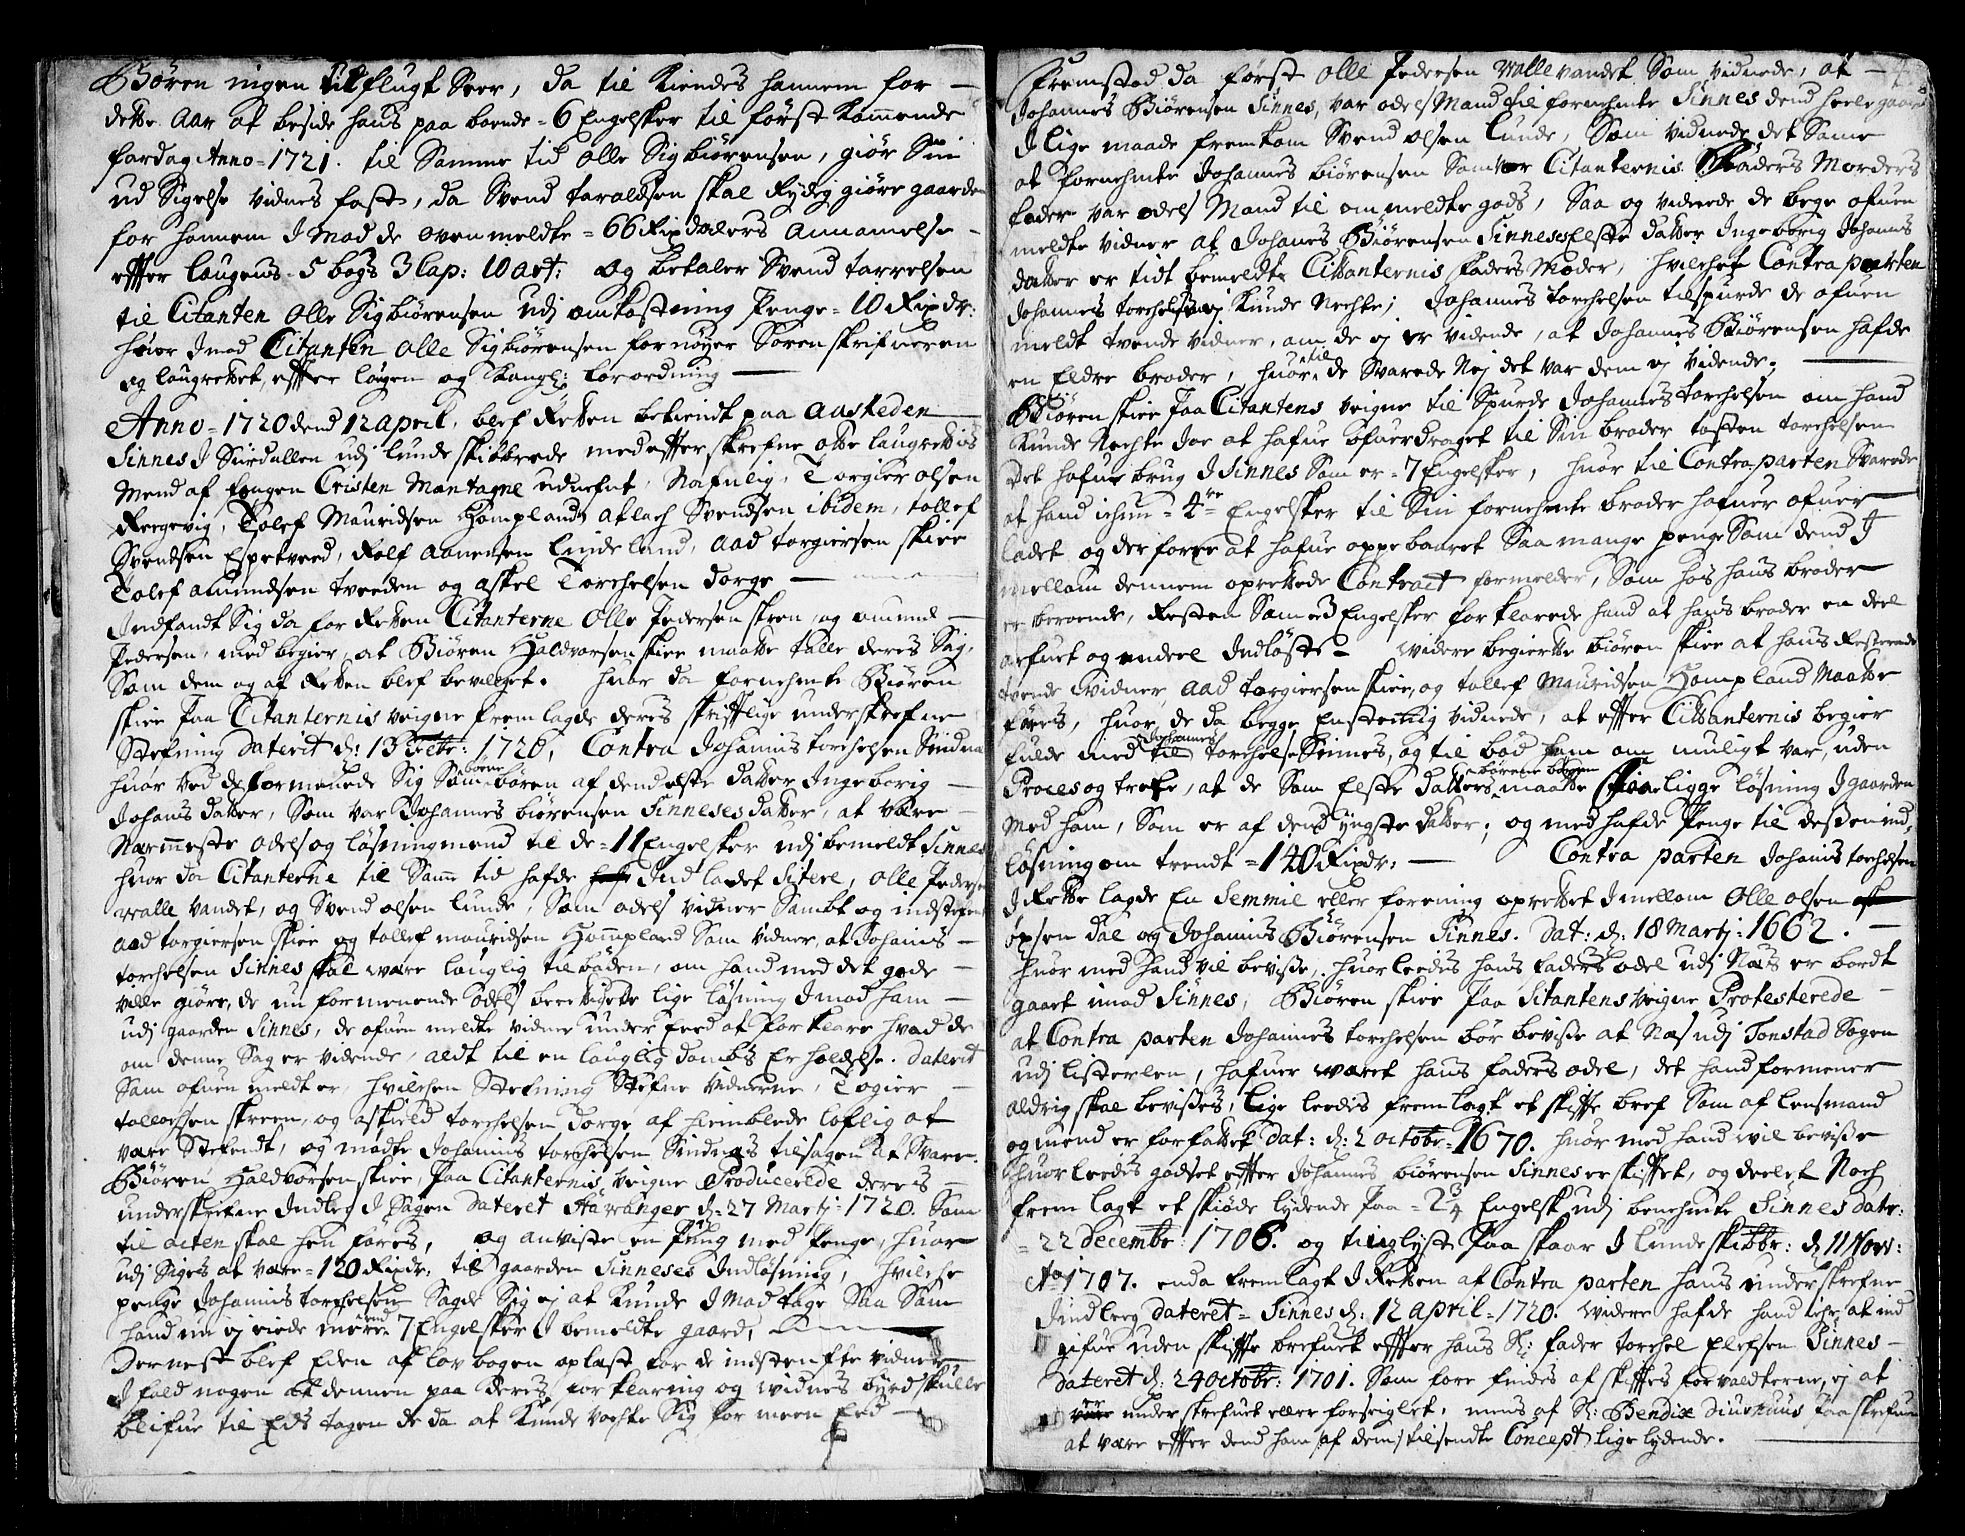 Børen ingen tilflugt Seer, da til Kiendes hannem for —
dette Aar at beside hans paa boende = 6 Engelsker til først Kommende
fardag Anno = 1721. til Samme tid Olle Sigbiørensen, giør Sin
ud Sigelse vidnes fast, da Svend taraldsen skal Rydeg giøre gaarden
for hannem I mod de ovenmeldte = 66 Rixdalers Annamelse
effter laugens = 5 bogs 3 Cap: 10 art: og betaler Svend tarrelsen
til Citanten Olle Sigbiørensen udj omkostning Penge = 10 Rixdr:
huor Imod Citanten Olle Sigbiørensen fornøyer Sorenskrifueren
og laugrettet, effter lougen og Kongl: forordning —
Anno = 1720 dend 12 april, blef Retten betiendt paa Aasteden
Sinnes I Siirdallen udj lunde skibbrede med efferskrefne otte laugrettis
Mend af fougen Cristen Mantagne udnefnt, Nafnlig, Torgier olsen
Reegevig, Tolef Mauridsen Homplandt, Atlach Svendsen ibidem, tollef
Svendsen Espetveed, Rolf Aanensen Lindeland, Aad torgiersen skiee
Tolef amundsen tveeden og Askel Torchelsen dorge —
Indfandt Sig da for Retten Citanterne Olle Pedersen skeen, og omund —
Pedersen, med begier, at Biøren Haldvorsen skiee maatte talle deris Sag,
Som dem og af Retten blef bevilget. huor da fornehmte Biøren
skiee Paa Citanternis veigne fremlagde deris skrifftlige underskrefne
Stefning Daterit d: 13 Febr: 1720, Contra Johannis torchelsen Sindnes
huor ved de formenede Sig Som børne børen af dend elste datter Ingeborig —
Johannis datter, Som var Johannes biørensen Sinneses datter, at være —
Nærmeste odels og løsningmend til de = 11 Engelsker udj bemeldt Sinnes
huor da Citanterne til Samme tid hafde Ind ladet Sitere, Olle Pedersen
Walle vandet, og Svend olsen lunde, Som odels vidner Sambt og indstefnt
Aad torgiersen skiee og tollef mauridsen Hompland Som vidner, at Johannis —
torchelsen Sinnes skal være lauglig tilbøden, om hand med det gode —
ville giøre, de nu formenende odels berettigede lige løsning I mod ham —
udj gaarden Sinnes, de ofuen meldte vidner under Eed at forklare hvad de
om denne Sag er vidende, aldt til en lauglig dombs Erholdelse. Daterit
Som ofuen meldt er, hvilchen Stefning Stefne vidnerne, Togier —
tollachsen skreen, og Askield torchelsen dorge af hiemblede loflig at
være Stefendt, og møtte Johannis torchelsen Sindnæs tilsagen at Svare.
Biøren Haldvorsen skiee, Paa Citanternis veigne Producerede deris —
underskrefne Indleg I Sagen Dateret Stavanger d: 27 Martj: 1720. Som
til acten skal hen føres, og anviste en Pung med Penge, huor
udj Siges at være = 120 Rixdr: til gaarden Sinneses Indløsning, hvilche
penge Johannis torchelsen Sagde Sig ej at kunde I mod tage Saa Som
hand nu ej eiede mere end 7 Engelsker I bemeldte gaard, —
Dernest blef Eden af lov bogen oplæst for de indstenfte vidner —
I fald nogen af dennem paa deres forklaring og vidnes byrd skulle
blifue til Eds tagen de da at kunde vochte Sig for meen Eed —
Fremstod da først Olle Pedersen Walle vandet Som vidnede, at —
Johannes Biørensen Sinnes, var odels Mand til fornehmte Sinnes dend heele gaard
I lige maade fremkom Svend olsen Lunde, Som vidnede det Same
at fornehmte Johannes biørensen Som er Citanternis Faders Morders
fader var odels Mand til ommeldte gods, Saa og vidnede de bege ofuen
meldte vidner at Johanes Biørensen Sinneses Elste datter Ingeborig Johannis
datter er tidt bemeldte Cittanternis faders Moder, hvilchet Contra parten
Johannis torchelsen ej kunde Nechte; Johannes torchelsen tilspurde de ofuen
meldt tvende vidner, om de ej er vidende, at Johannes Biørensen hafde
en Eldre broder, huor til de Svarede Nej det var dem ej vidende. —
Biøren skiee Paa Citantens veigne til Spurde Johannes torchelsen om hand
kunde Nechte Joe at hafue ofuerdraget til Sin broder tosten torchelsen
Det hafuer brug I Sinnes Som er = 7 Engelsker, huor til Contra parten Svarede
at hand ichun = 4re Engelsker til Sin fornehmte broder hafuer ofuer —
ladet og derforre at hafue oppebaaret Saa mange penge Som dend I
mellom dennem oprettede Contract formelder, Som hos hans broder
er beroende, Resten Som er 3 Engelsker forklarede hand at hans broder en deel
arfuet og endeel Indløste — widere begierte biøren skiee at hans Resterende
tvende widner Aad torgiersen skiee, og tollef Mauridsen Hompland Maatte
føres, huor de da begge Enstemig vidnede, at effter Cittanternis begier
fulde med til Johannes torchelse Sinnes, og til bød ham om muligt var, uden
Proces og trette, at de Som Elste datters børene børen maatte lige løsning I gaarden
Med ham, Som er af dend yngste datter; og med hafde Penge til desSen ind
løsning om trendt = 140 Rixdr: — Contra parten Johanis torchelsen
I Rette lagde En Semmie eller forening oprettet I mellom Olle olsen
øpsen dal og Johannis Biørensen Sinnes. Dat: d: 18 Martj: 1662. —
huor med hand vil bevisse, huorleedes hans faders odel udj Næs er bordt
gaaet imod Sinnes, Biøren skiee Paa Citantens veigne Protesterede —
at Contra parten Johannes torchelsen bør bevisse at Næs udj Tonstad Sogen
udj listerlen, hafuer været hans faders odel, det hand formener
aldrig skal bevisses, lige leedes fremlagt et skiffte breef Som af Lensmand
og mend er forfattet dat: d: 2 octobr = 1670. huor med hand wil bevisse
huor leedes godset effter Johannes biørensen Sinnes er skifftet, og deelet Noch
fremlagt et skiøde lydende Paa = 2 3/4 Engelsk udj benehmte Sinnes dater:
= 22 decembr: 1706. og tinglyst Paa skaar I Lunde skibbr: d: 11 Nov:
Ao 1707. enda fremlagt I Retten af Contra parten hans underskrefne
Indleeg Dateret = Sinnes d: 12 april = 1720. widere hafde hand ichr. at ind
gifue uden skiffte brefuet effter hans Sl: fader torchel Elefsen Sinnes —
Dateret d: 24 octobr: 1701. Som fore findes af skifftes forvaldterne, ej at
være underskrefuet eller forseiglet, mens af Sl: Bendix Diurhuus Paaskrefuen
at være effter dend ham af dem tilsendte Concept lige lydende. —